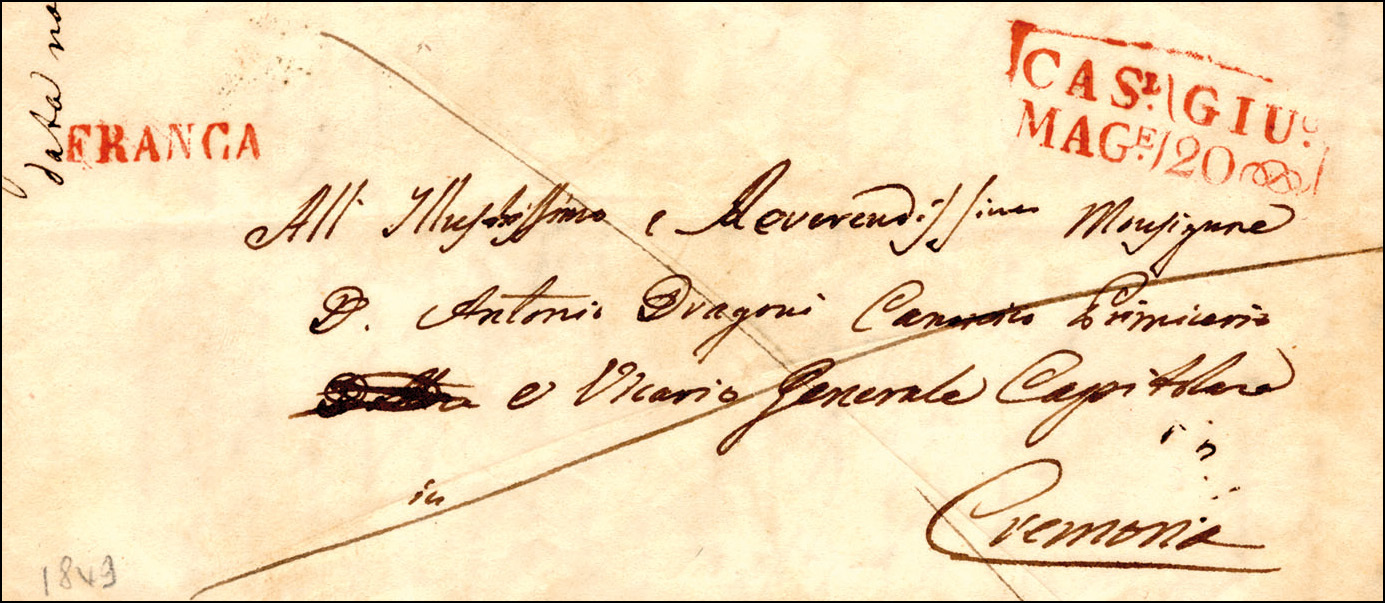 data no
FRANCA
CAS.L GIU.O
MAG.E 20
All Illustrissimo e Reverendissimo Monsignore
D. Antonio Dragoni Canonico Primicerio
e Vicario Generale Capitolare
in
in
Cremona
1849